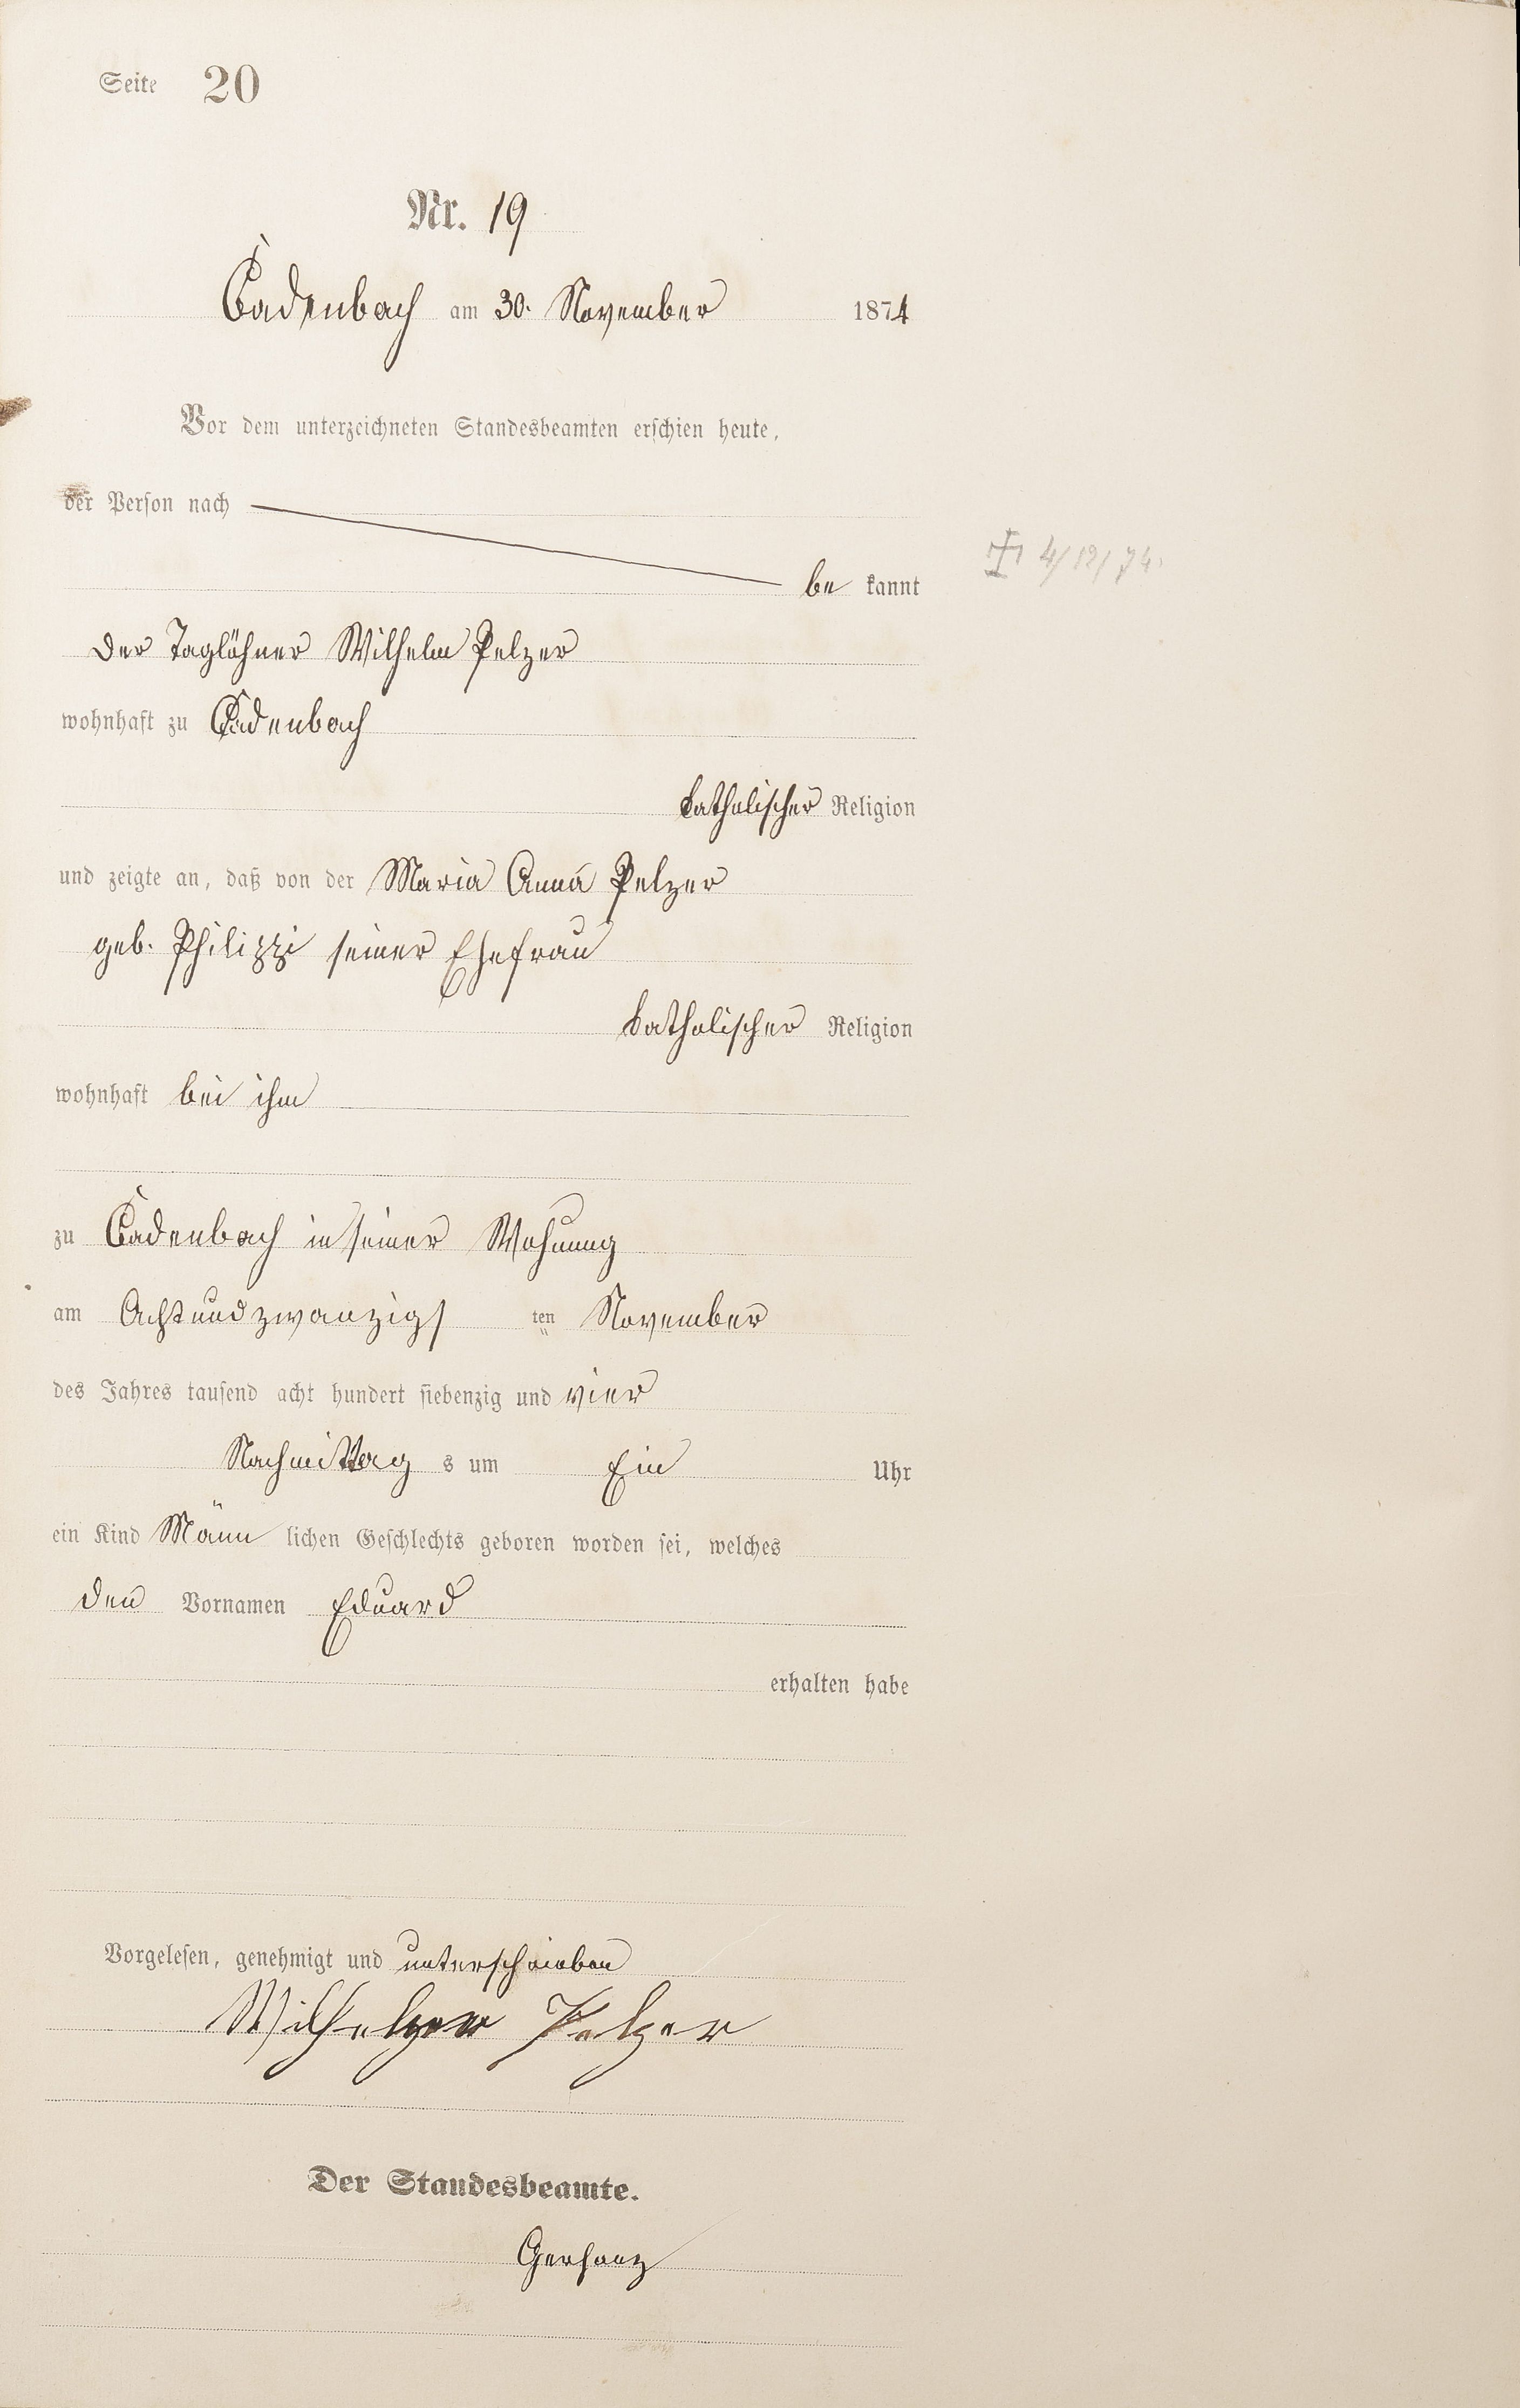 Seite 20
Nr. 19
Cadenbach am 30. November 1874
Vor dem unterzeichneten Standesbeamten erschien heute,
der Person nach
be kannt
✝ 4/12/74.
der Taglöhner Wilhelm Pelzer
wohnhaft zu Cadenbach
katholischer Religion
und zeigte an, daß von der Maria Anna Pelzer
geb. Philippi seiner Ehefrau
katholischer Religion
wohnhaft bei ihm
zu Cadenbach in seiner Wohnung
am Achtundzwanzigs ten November
des Jahres tausend acht hundert siebenzig und vier
Nachmittag s um Ein Uhr
ein Kind Männ lichen Geschlechts geboren worden sei, welches
den Vornamen Eduard
erhalten habe
Vorgelesen, genehmigt und unterschrieben
Wilhelm Pelzer
Der Standesbeamte.
Gerhanz